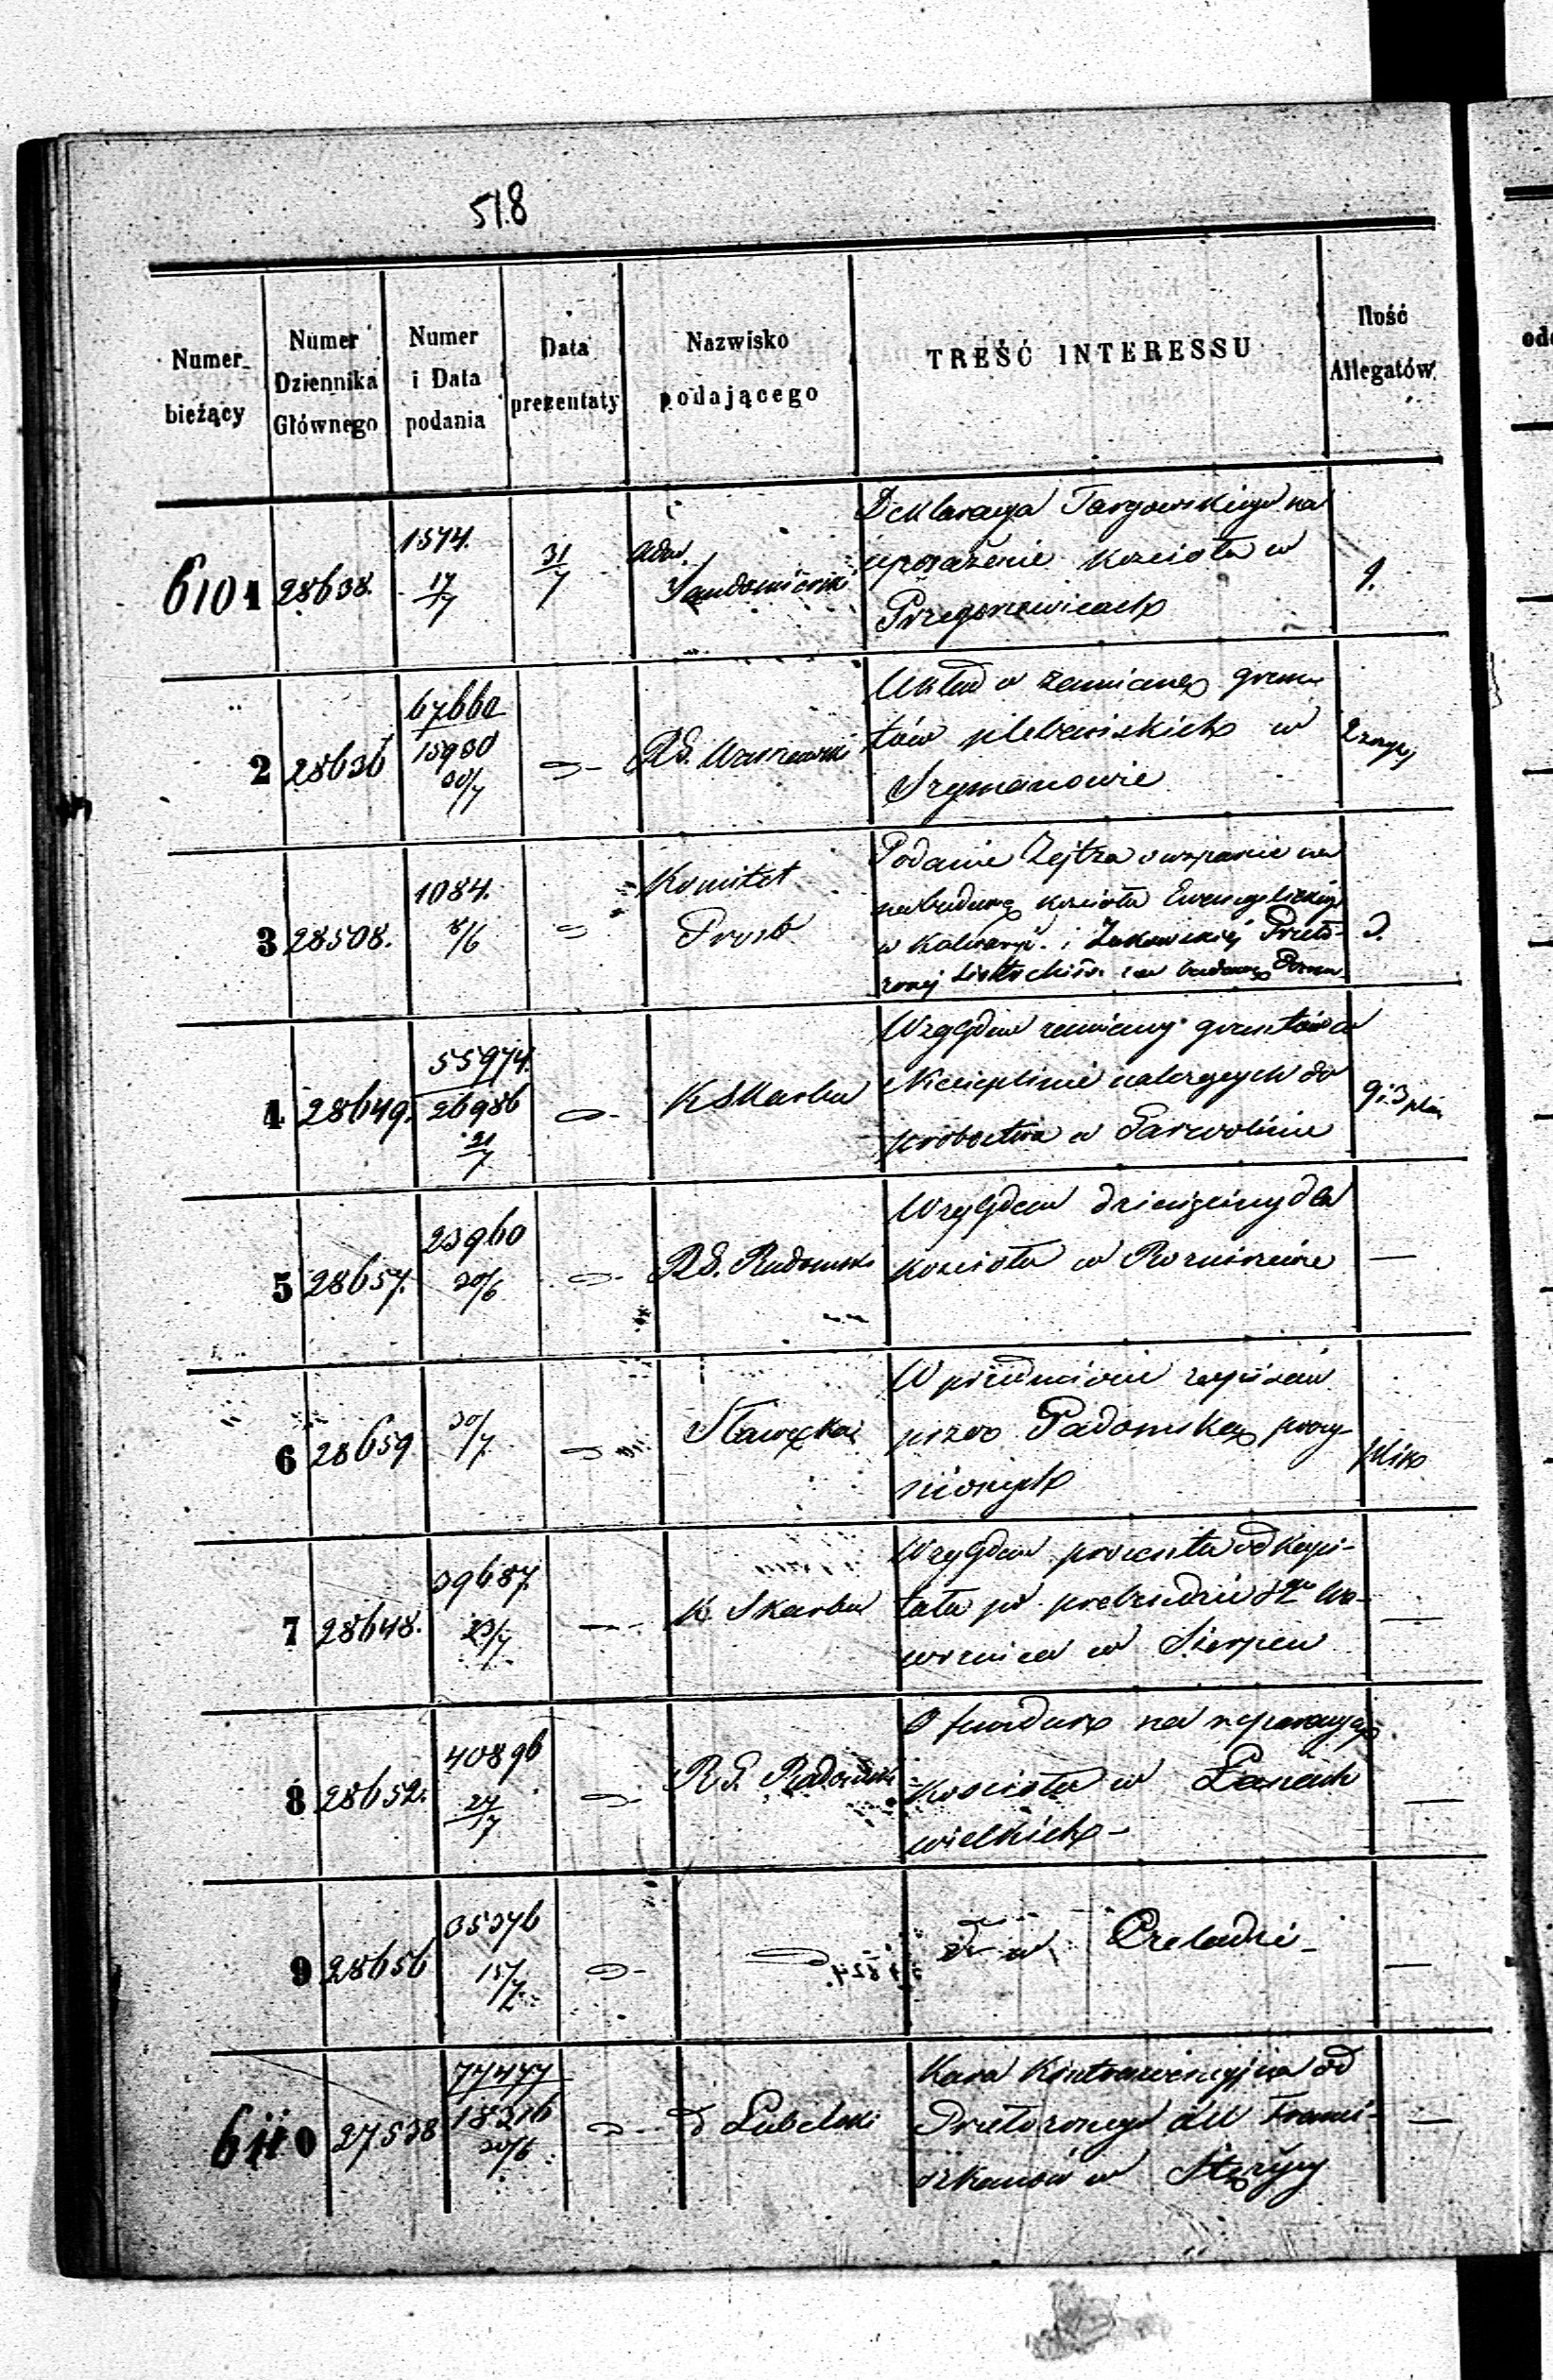 518
Numer bieżący
Numer Dziennika Głównego
Numer i Data podania
Data prezentaty
Nazwisko podającego
TREŚĆ INTERESSU
Ilość Allegatów
6101 28638. 1574. 17/7 31/7 Adm. Sandomierski
Deklaracya Targowskiego na
uposażenie kościoła w
1.
2 28636 67660
15930
30/7
RG. Warszawski
Układ o zamianę grun-
tów plebańskich w
Szymanowie
3 28508. 1084. 8/6
Komitet
Prosb
Podanie Zejtza o wsparcie na
nabudowę kościoła Ewangelickiego
w Kalwaryi. i Żukowskiej Przeło-
żonej
3.
4 28649. 55974.
26986
21/7
K Skarbu
Względem zamiany gruntów w
należących do
probostwa w Garwolinie
9 i 3 plan
5 28657. 23960
30/6
RG. Radomski
Względem dziesięciny dla
kościoła w Rozniszewie
—
6 28659 30/7
W przedmiocie zapisów
przez Radomską poczy-
nionych
plika
7 28648. 39687.
23/7
K Skarbu
Względem procentu od kapi-
tału po
w Sierpcu
—
8 28652. 40896
27/7
RG. Radomski
O fundusz na reparacyę
kościoła w Łanach
wielkich —
—
9 28656 35376
15/7
dto w Czeladzi —
—
6110 27538 77477
18316
30/6
d Lubelski
Kara Kontrawencyjna od
Przełożonego XX Franci-
szkanów w Stężycy
—